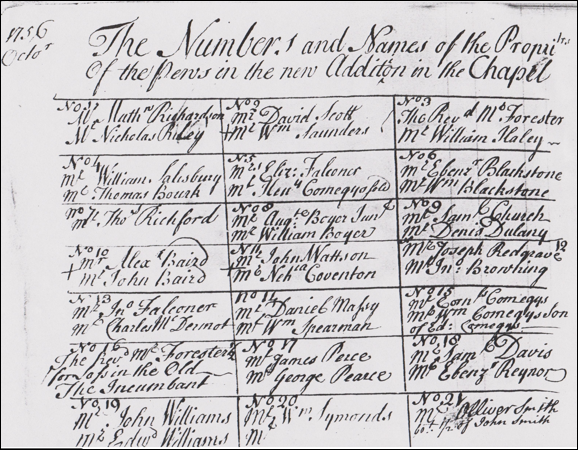 1756
Octor
The Numbers and Names of the Proprietrs
Of the Pews in the new Addition in the Chapel
No. 1
Mr Mathw Richardson
Mr Nicholas Riley
No 2
Mr David Scott
Mr Wm Saunders
No 3
The Revd Mr Forester
Mr William Haley
No 4
Mr William Salsbury
Mr Thomas Bourk
No 5
Mrs Eliz: Falconer
Mr Henry Comegys
No 6
Mr Ebenzr Blackstone
Mr Wm Blackstone
No 7
Mr Thos Richford
No 8
Mr Augte Boyer Junr
Mr William Boyer
No 9
Mr Saml Church
Mr Denis Dulany
No 10
Mr Alexr Baird
Mr John Baird
No 11
Mr John Wattson
Mr Nehia Coventon
12
Mr Joseph Redgrave
Mr Jno Browning
No 13
Mr Jno Falconer
Mr Charles Mc Dermot
No 14
Mr Daniel Massy
Mr Wm Spearman
No 15
Mr Corns Comegys
Mr Wm Comegys Son
of Ed: Comegys
No 16
The Revd Mr Forester
for in the Old
The Incumbant
No 17
Mr James Perce
Mr George Pearce
No 18
Mr Saml Davis
Mr Ebenzr Reynor
No 19
Mr John Williams
Mr Edwd Williams
No 20
Mr Wm Symonds
M
No 21
Mr Olliver Smith
of John Smith